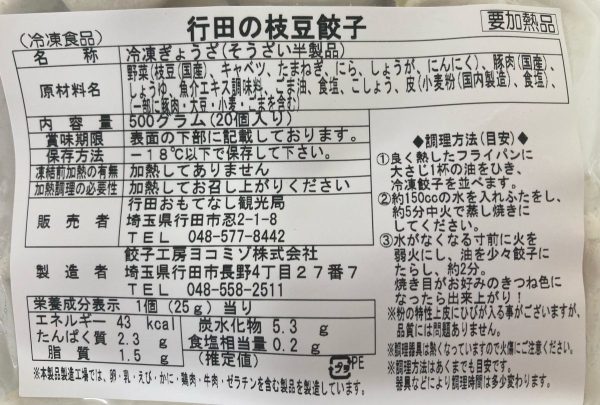 (冷凍食品)
行田の枝豆餃子
要加熱品
名 称 冷凍ぎょうざ(そうざい半製品)
原材料名 野菜(枝豆(国産)、キャベツ、たまねぎ、にら、しょうが、にんにく)、豚肉(国産)、
しょうゆ、魚介エキス調味料、ごま油、食塩、こしょう、皮(小麦粉(国内製造)、食塩)、
(一部に豚肉・大豆・小麦・ごまを含む)
内 容 量 500グラム(20個入り)
賞味期限 表面の下部に記載しております。
保存方法 -18℃以下で保存して下さい。
凍結前加熱の有無 加熱してありません
加熱調理の必要性 加熱してお召し上がりください
販 売 者 行田おもてなし観光局
埼玉県行田市忍2-1-8
TEL 048-577-8442
製 造 者 餃子工房ヨコミゾ株式会社
埼玉県行田市長野4丁目27番7
TEL 048-558-2511
栄養成分表示 1個(25g)当り
エネルギー 43 kcal
たんぱく質 2.3 g
脂 質 1.5 g
炭水化物 5.3 g
食塩相当量 0.2 g
(推定値)
プラ PE
※本製品製造工場では、卵・乳・えび・かに・鶏肉・牛肉・ゼラチンを含む製品を製造しています。
◆調理方法(目安)◆
①良く熱したフライパンに
大さじ1杯の油をひき、
冷凍餃子を並べます。
②約150ccの水を入れふたをし、
約5分中火で蒸し焼きに
してください。
③水がなくなる寸前に火を
弱火にし、油を少々餃子に
たらし、約2分。
焼き目がお好みのきつね色に
なったら出来上がり!
※粉の特性上皮にひびが入る事がございますが、
品質には問題ありません。
※調理器具は熱くなっていますので火傷にご注意ください。
※調理方法はあくまでも目安です。
器具などにより調理時間は多少変わります。